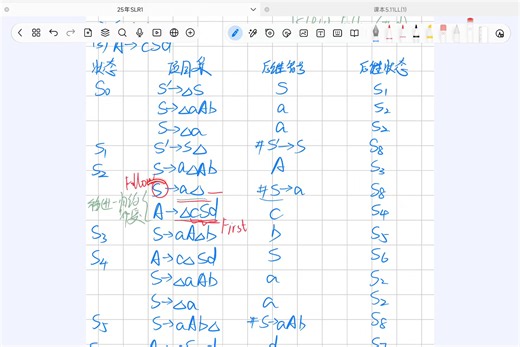 25年SLR1) 课本S.11LL(1)
(3) A→cSd
状态 项目集 后继符号 后继状态
S₀ S'→△S S S₁
S→△aAb a S₂
S→△a a S₂
S₁ S'→S△ #S'→S S₈
S₂ S→a△Ab A S₃
Follow S→a△ #S→a S₈
移进-归约冲突 A→△cSd c S₄
First
S₃ S→aA△b b S₅
S₄ A→c△Sd S S₆
S→△aAb a S₂
S→△a a S₂
S₅ S→aAb△ #S→aAb S₈